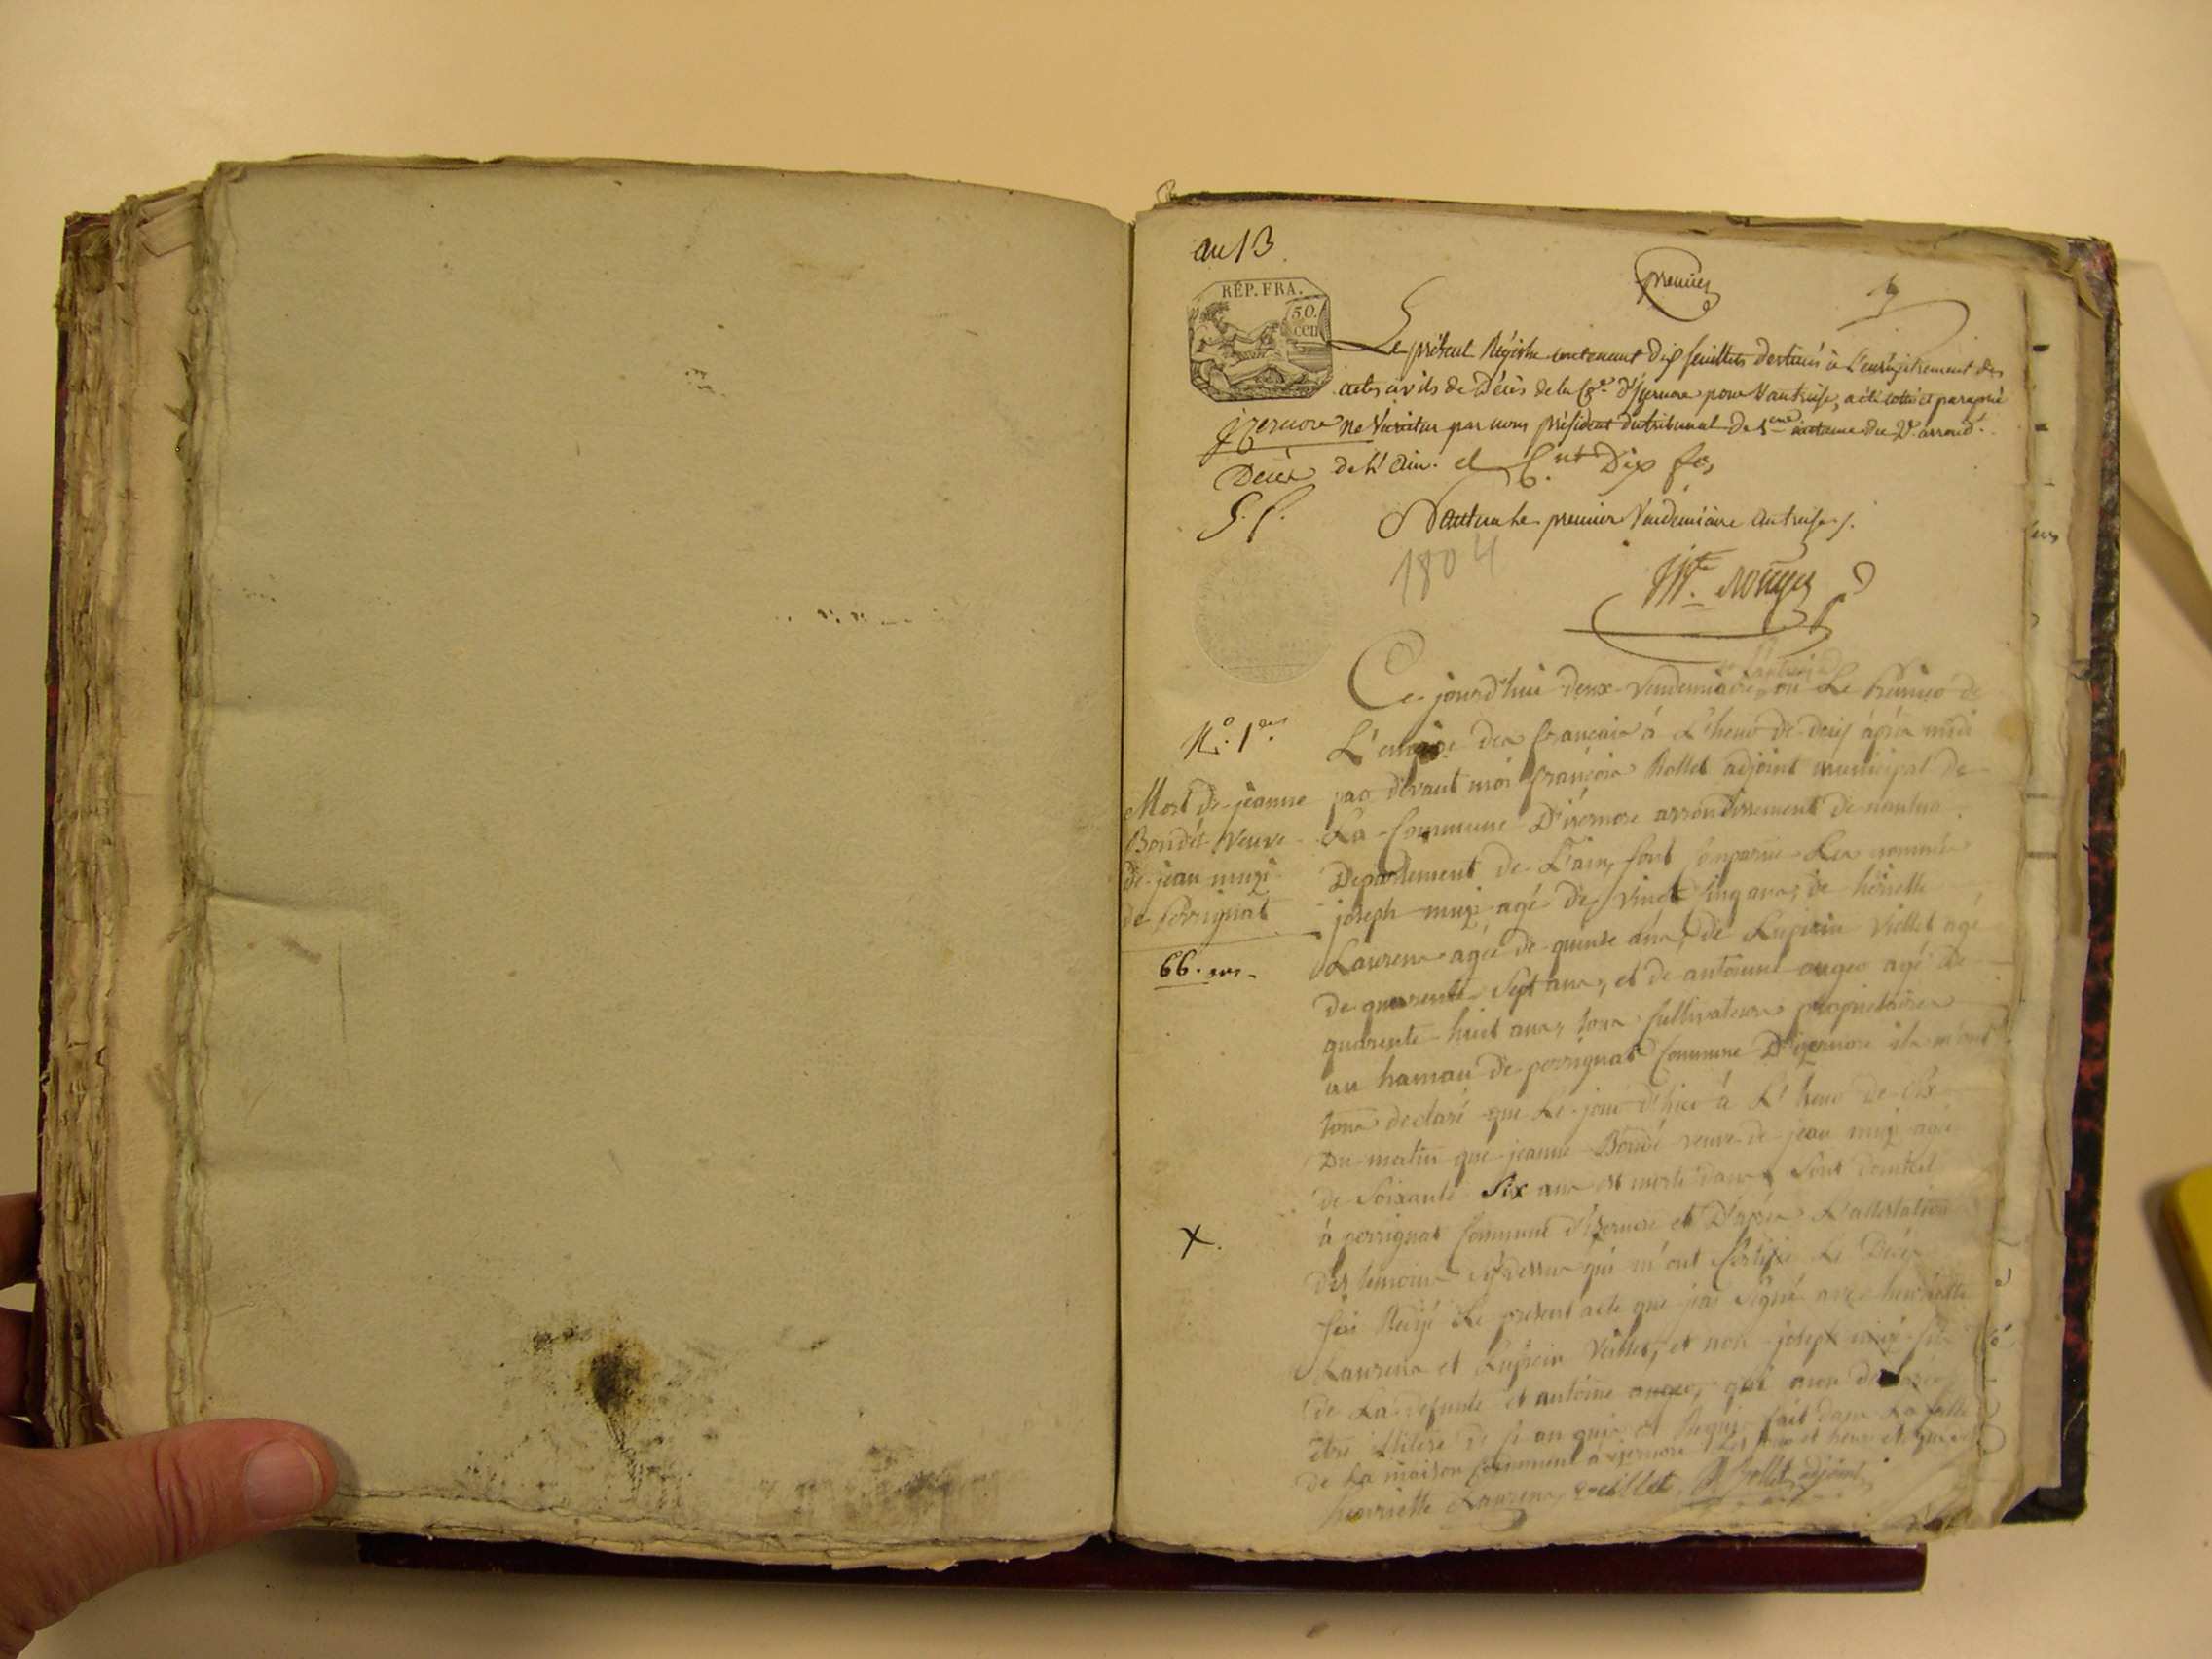 an 13
premier
RÉP. FRA.
50.
cen
Le présent Régistre contenant dix feuillets destinés à l'enrégistrement des
actes civils de Décès de la C.ne d'Izernore pour l'an treize, a été cotté et paraphé
Izernore
ne varietur par nous président du tribunal de 1ere instance du arrond.
Décès
de l'Ain. et C. Dix fo,
S. P.
Nantua le premier Vendémiaire an treize
1804
Ce jourd'hui deux vendemiaire an treize ou Le Premier de
N.o 1er
L'empire des francais à L'heure de deux après midi
Mort de jeanne
par devant moi françois Rollet adjoint municipal de
Bondét veuve
La Commune D'izernore arrondissement de nantua
de jean
Departement de L'ain, sont comparus Les nommés
de Perrignat
joseph agé de vinct cinq ans, de
66. ans
Laurens agée de quinse ans, de Lupicin Viellet agé
de quarente sept ans, et de antoinne agé de
quarente huit ans, tous cultivateurs proprietaires
au hamau de perrignat Commune D'izernore ils m'ont
tous declaré que Le jour d'hier à L'heure de six
Du matin que jeanne Bondé veuve de jean agée
de Soixante Six ans est morte dans Sont domicil
X.
à perrignat Commune d'izernore et D'après L'attestation
des temoins cy dessus qui m'ont Certifié Le Décès
j'ai Redijé Le present acte que j'ai signé avec henriette
Laurens et Lupicin Veillet, et non joseph fils
de La defunte et antoine qui mon declaré
être illiteré de ce anquis et Requis fait dans La salle
de La maison Commune à izernore Les jour et heure et
henriette Laurens veillet Rollet adjoint